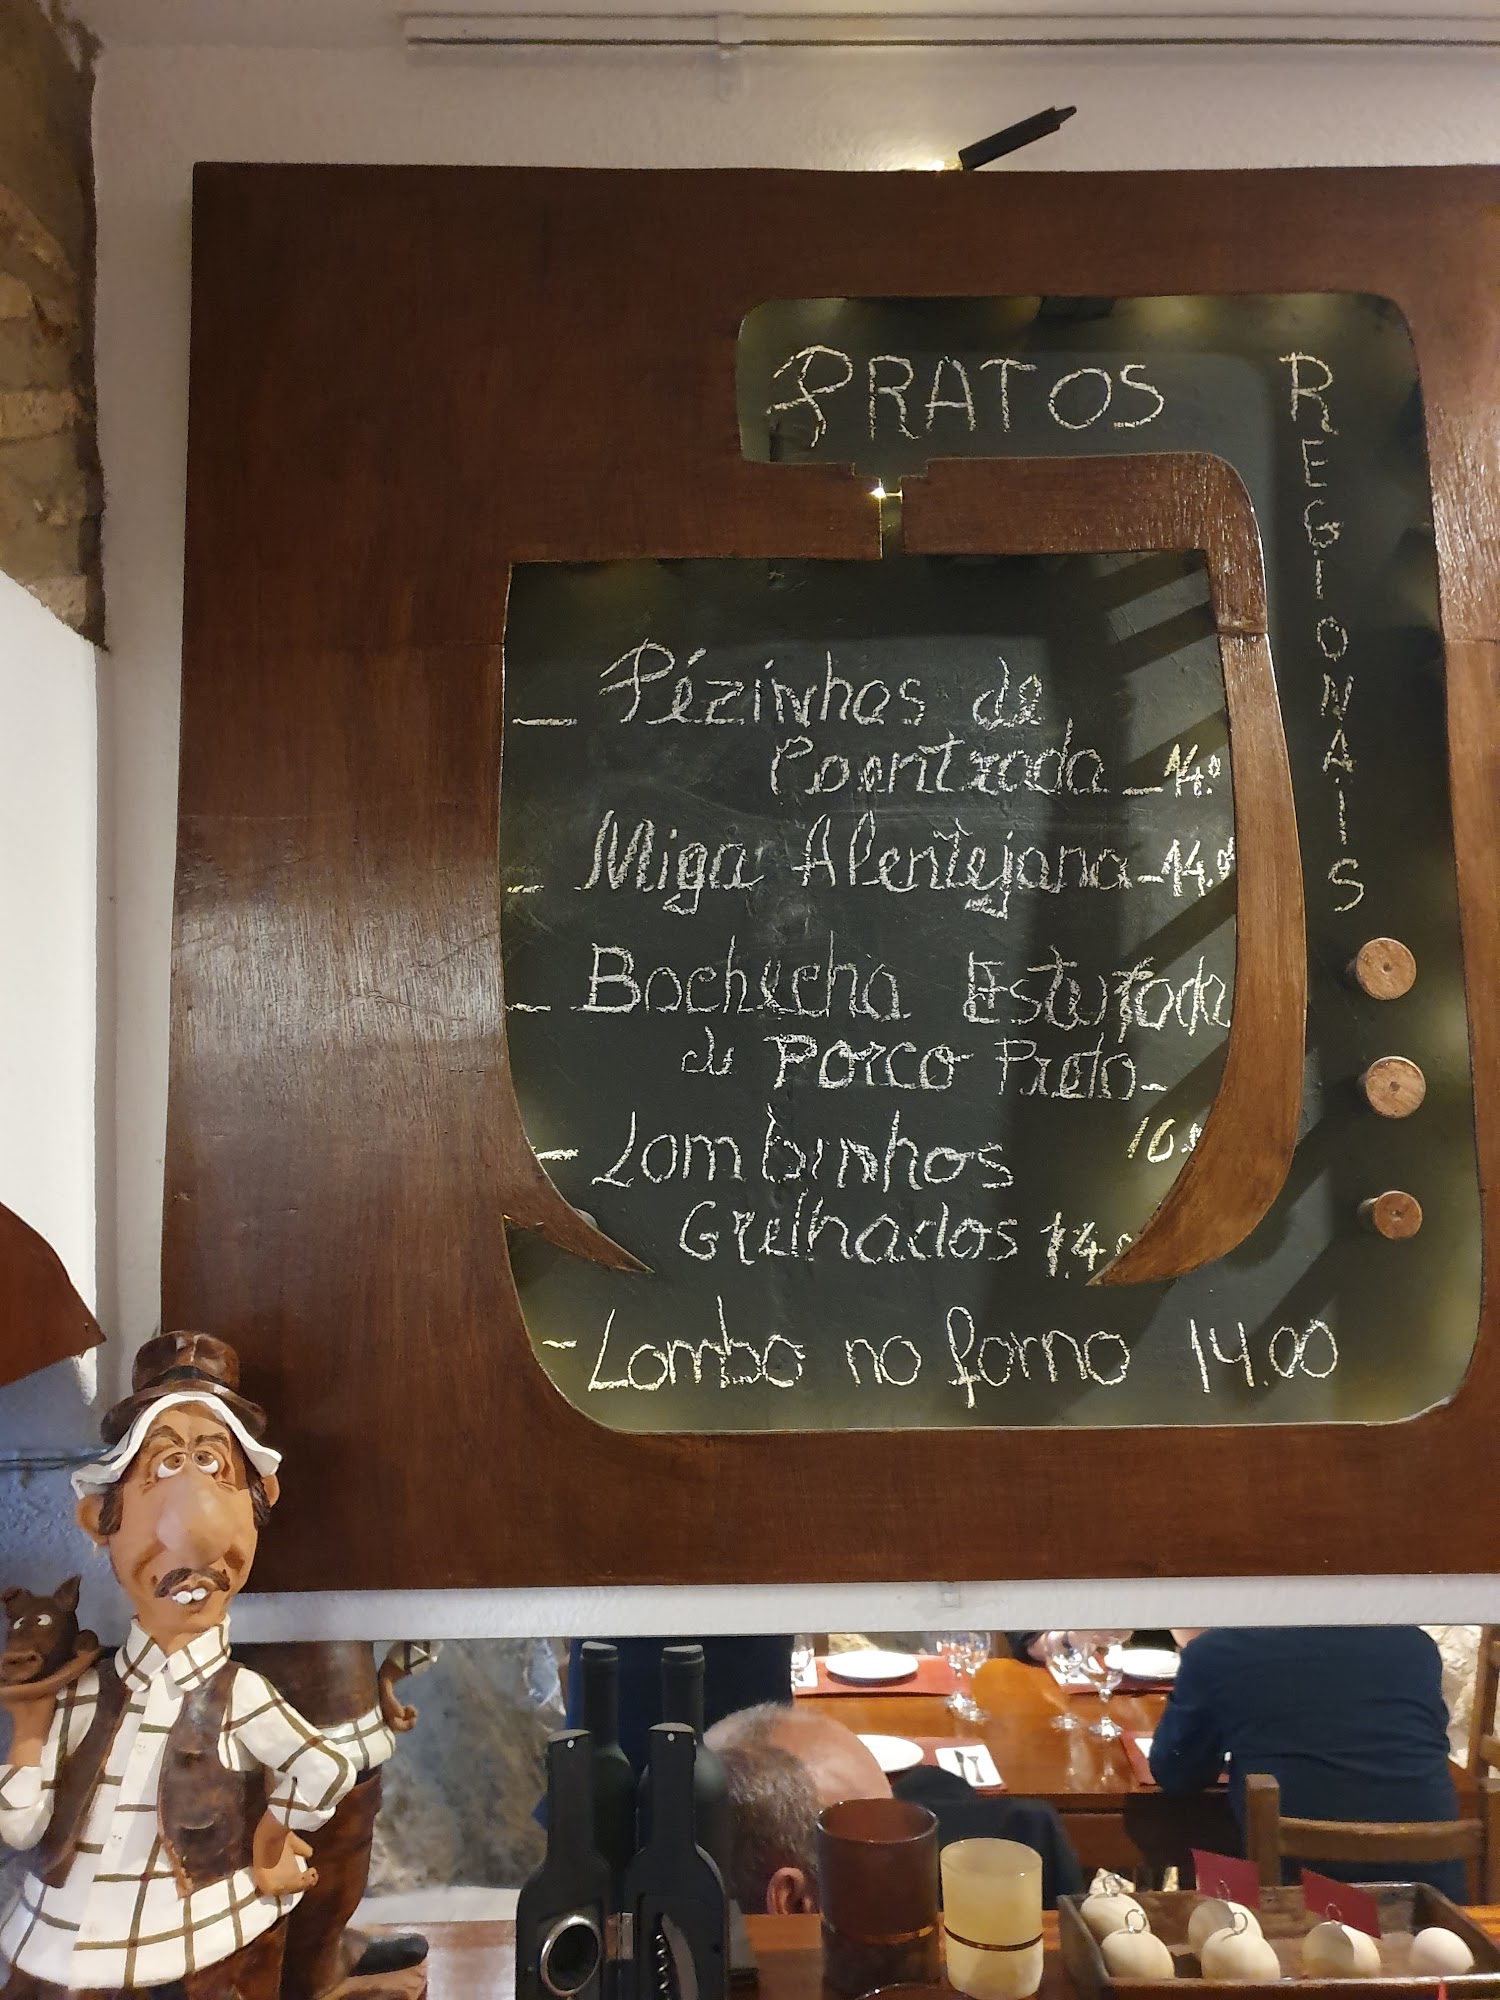 PRATOS
REGIONAIS
- Pézinhos de
Coentrada - 14.º
- Miga Alentejana - 14.00
- Bochecha Estufada
de Porco Preto -
16.
- Lombinhos
Grelhados 14.
- Lombo no forno 14.00